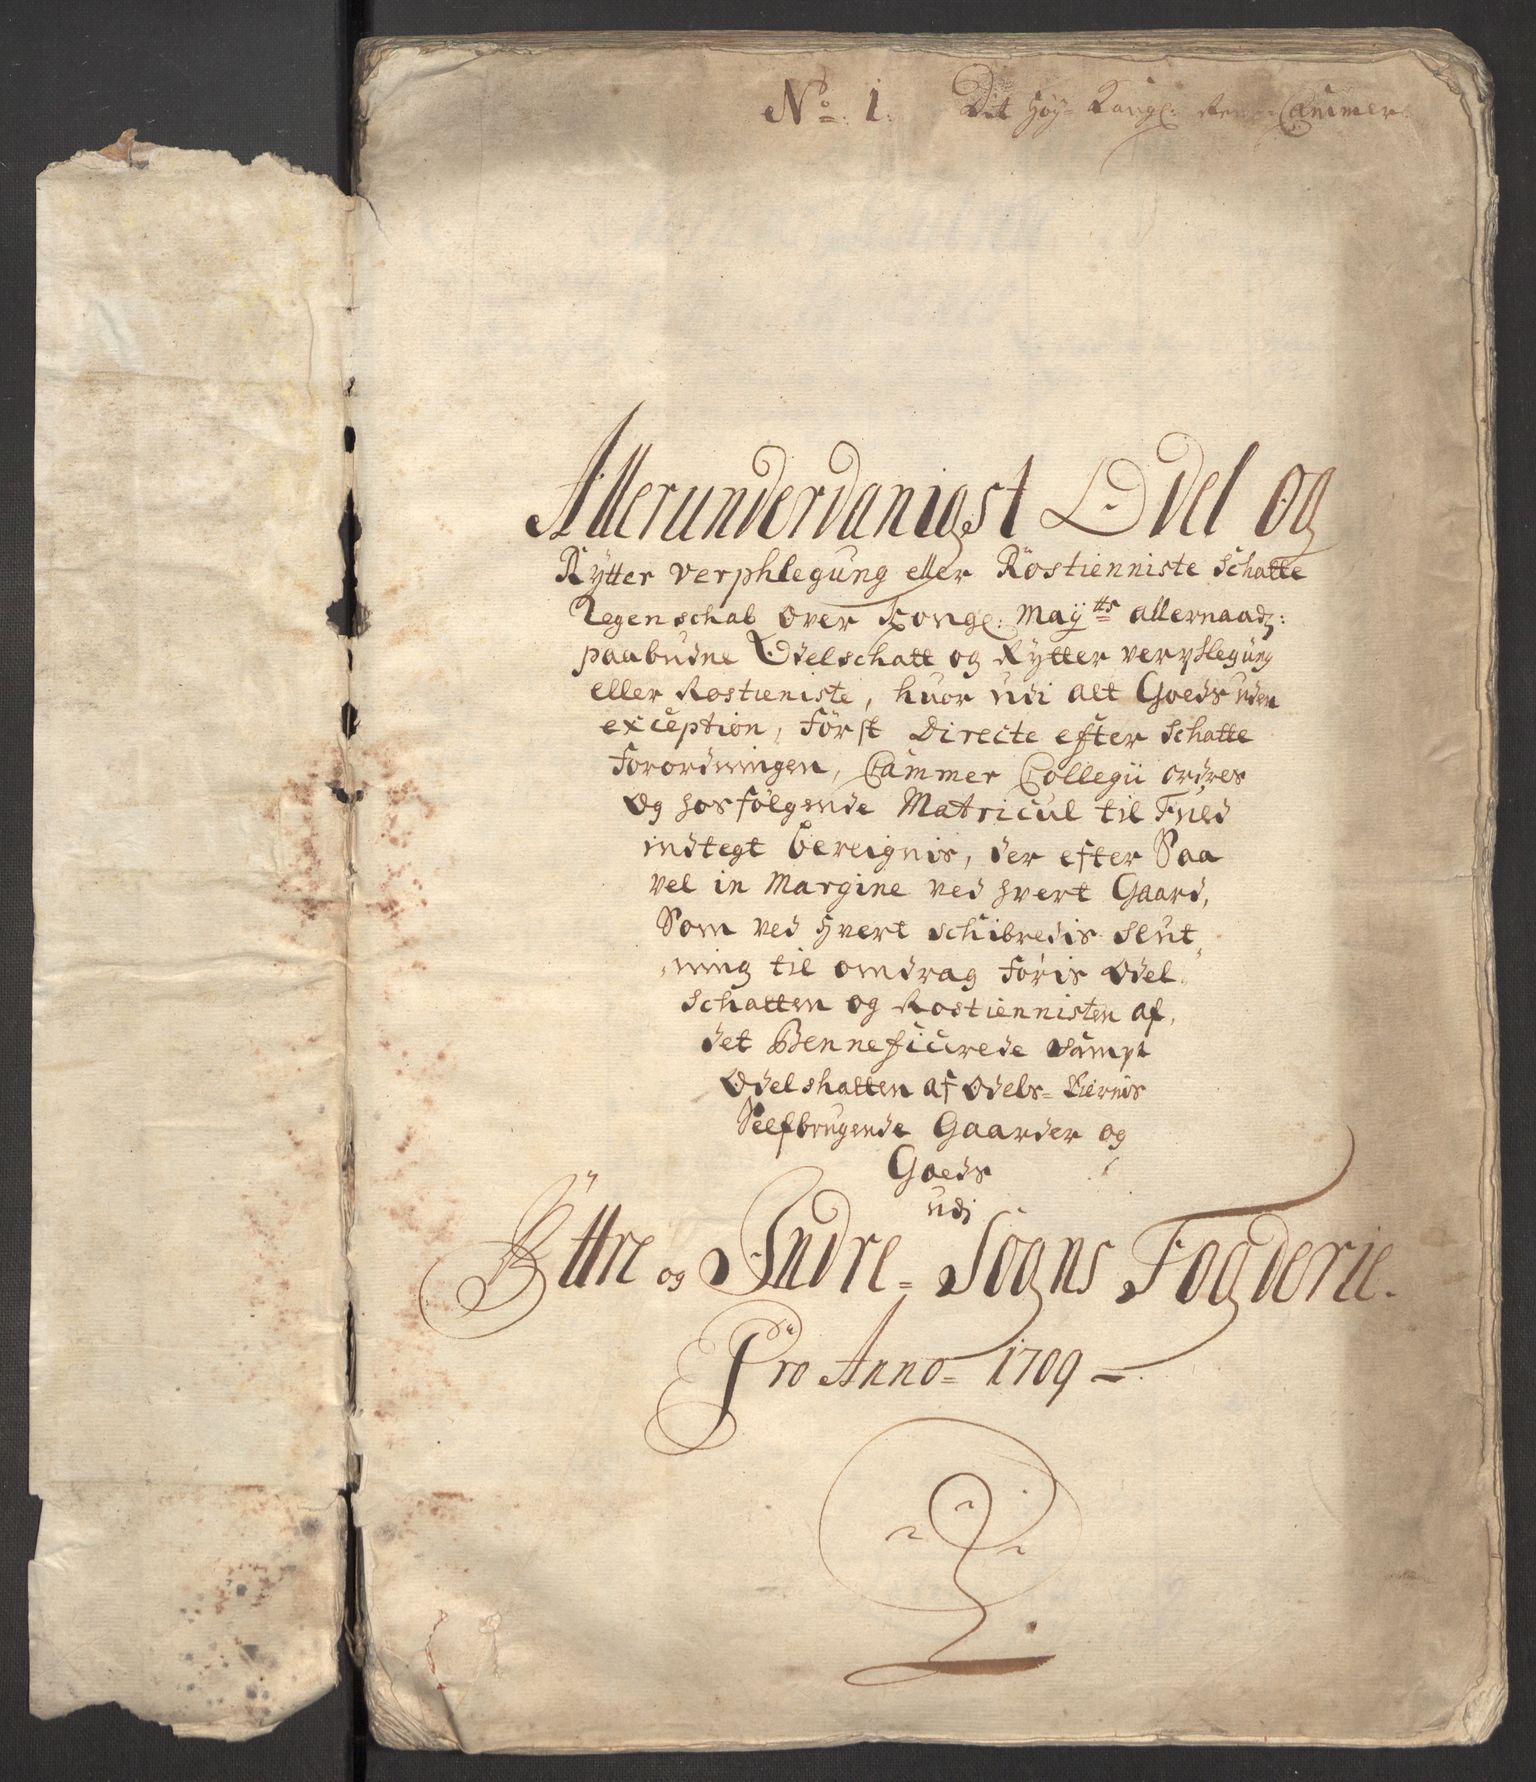 No: 1. Dit Höy= Kongl: Rente Cammer.
Allerunderdanigst Odel og
Rytter verphlegung eller Rostienniste Schatte
Regenschab over Kongl: Maÿtts allernaadg:
paabudne Odelschatt og Rytter verphlegung
eller Rostieniste, huor udi alt Goeds uden
exception, först Directe efter Schatte
forordningen, Cammer Collegii ordres
og hosfölgende Matricul til Fuld
indtegt bereignis, der efter Saa
vel in Margine ved hvert Gaard,
Som ved hvert schibredis slut,,
,,ning til omdrag föris Odel,,
Schatten og Rostiennisten af,
det Beneficerede sampt
Odelshatten af Odels=Eiernis
Selfbrugende Gaarder og
Goeds
udi
Ÿttre og Indre= Sogns Fogderie.
Pro Anno= 1709 =